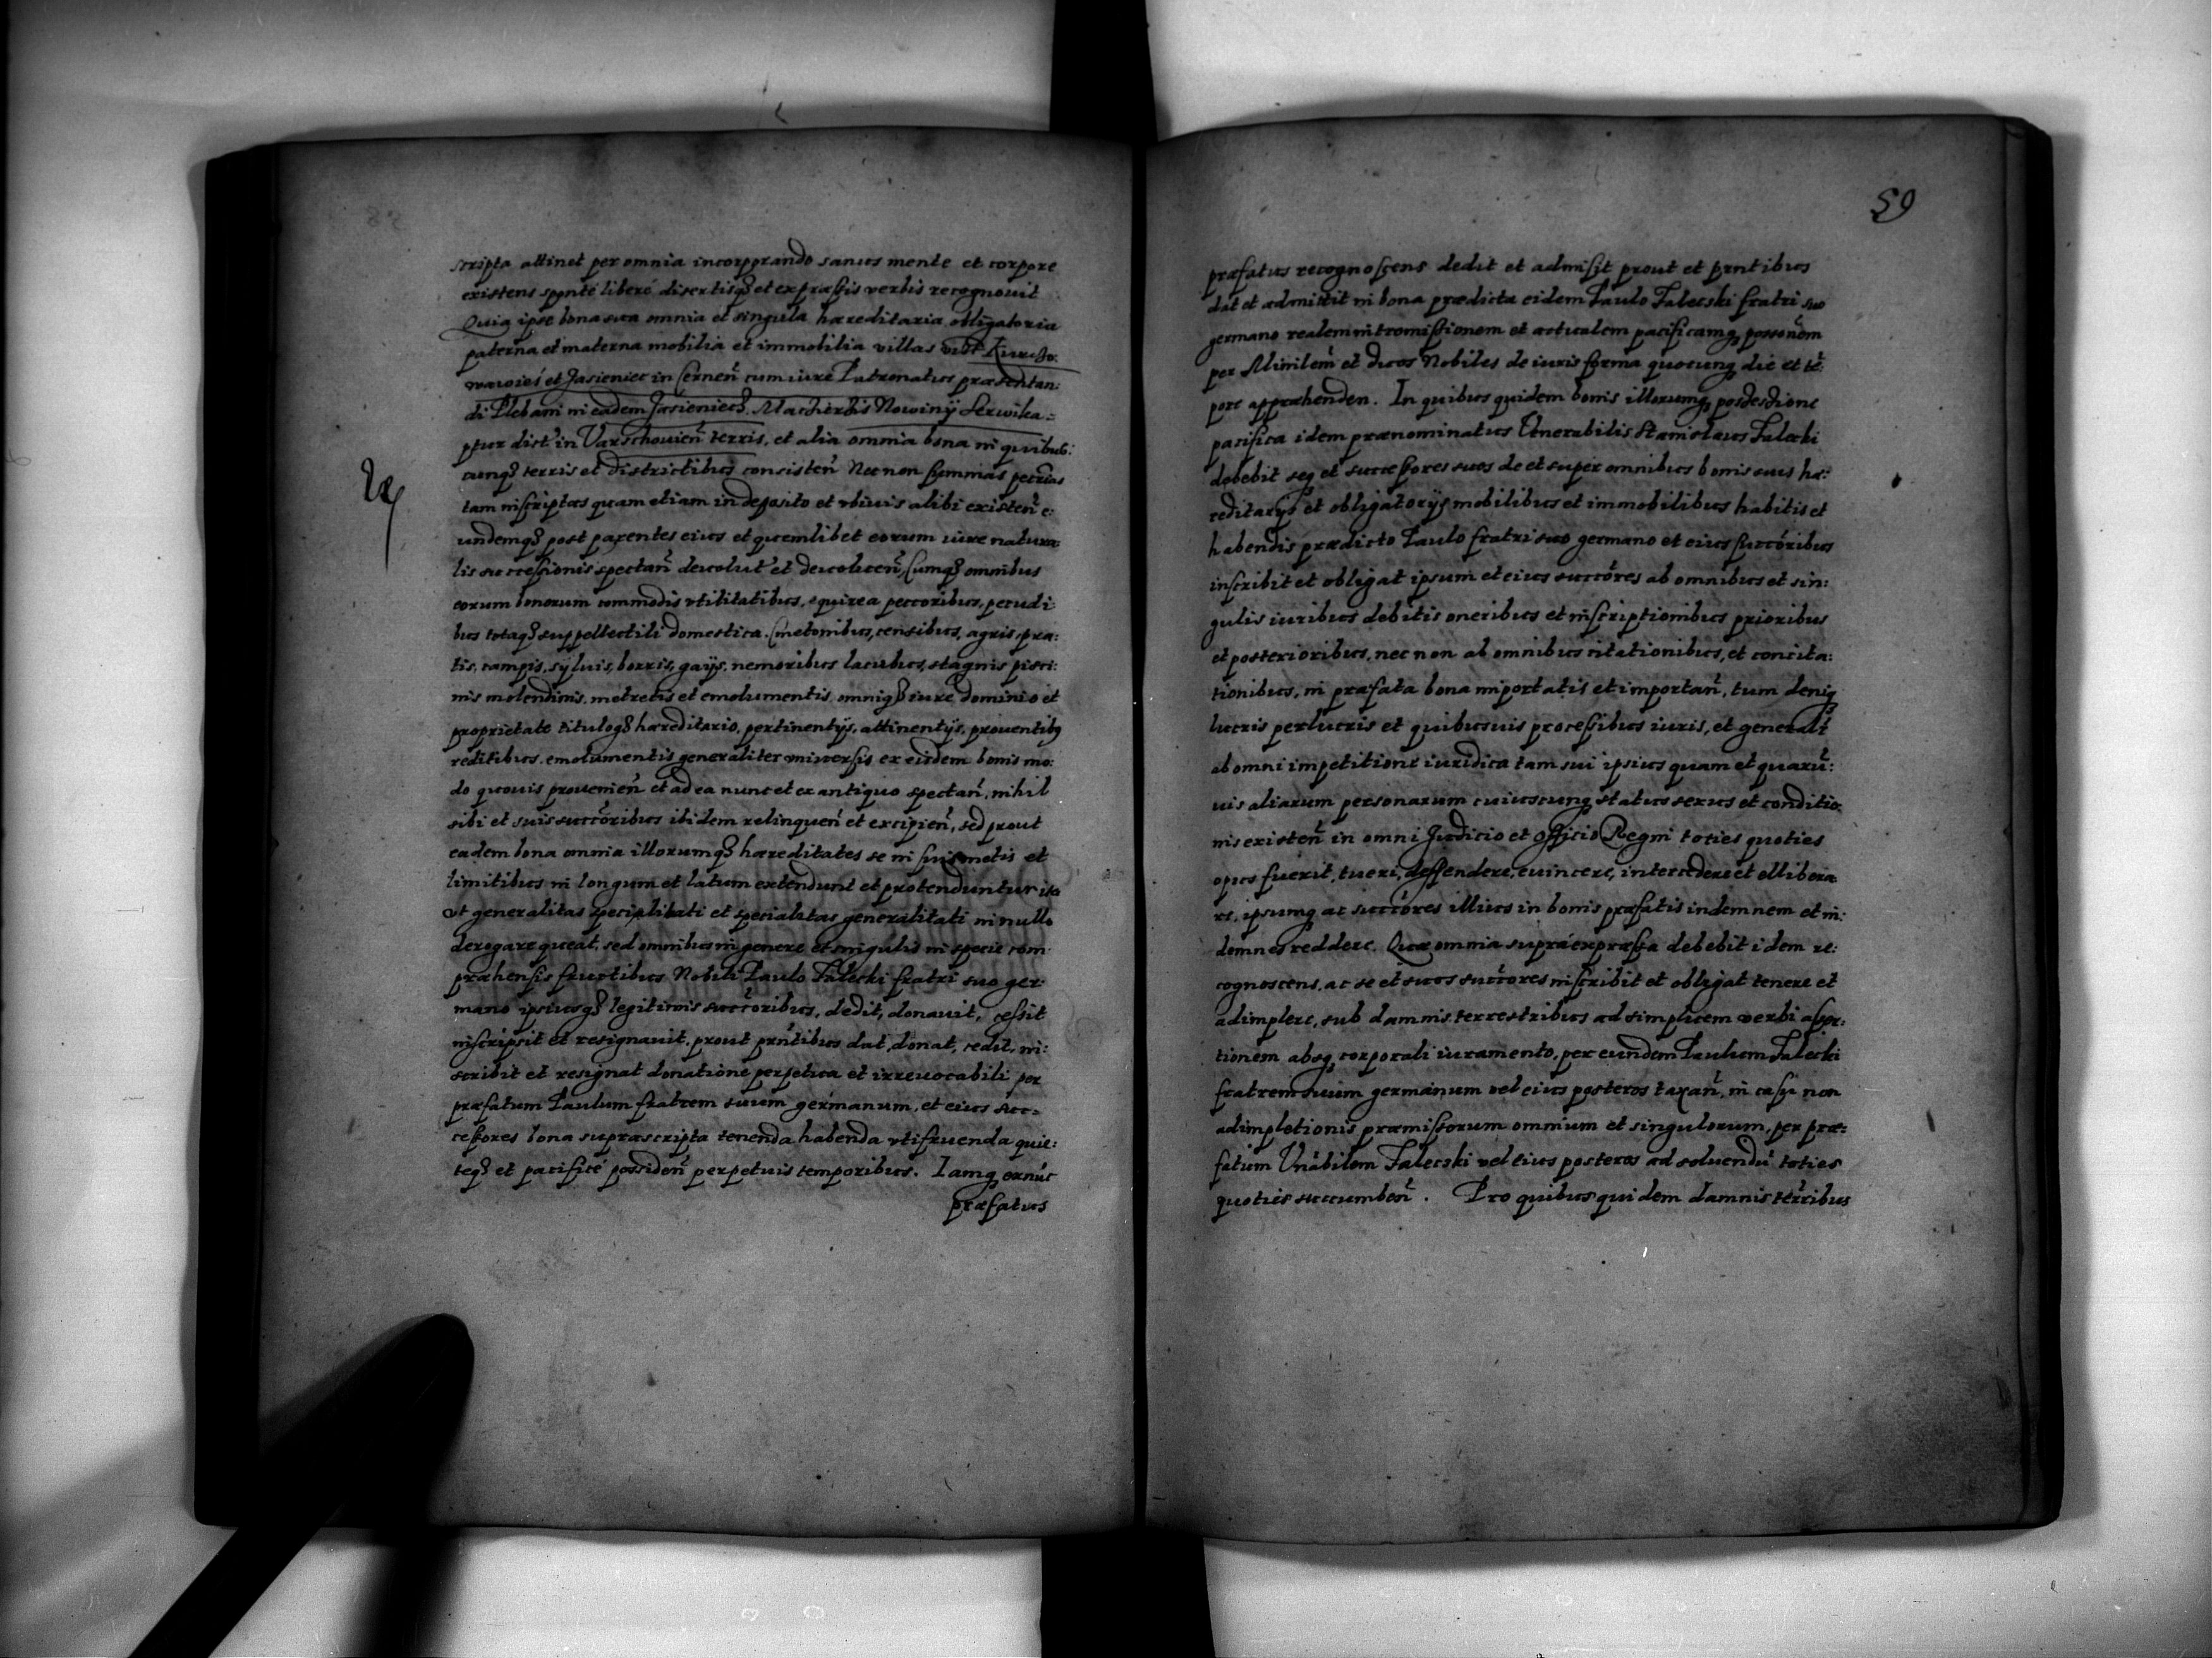 scripta attinet per omnia incorporando sanus mente et corpore
existens sponte libere disertisq3 et expræssis verbis recognovit
Quia ipse bona sua omnia et singula hæreditaria obligatoria
paterna et materna mobilia et immobilia villas vidt
et Jasieniec in Cernen cum iure Patronatus præsentan:
di Plebani in eadem Jasieniecz. Nowiny
ptur dist in Varschovien terris, et alia omnia bona in quibus:
cunq3 terris et districtibus consisten Nec non summas pecrias
tam inscriptas quam etiam in deposito et vbiuis alibi existen e:
undemq3 post parentes eius et quemlibet eorum iure natura:
lis successionis spectan devolut et devoluen, Cumq3 omnibus
eorum bonorum commodis vtilitatibus, equirea peccoribus, pecudi:
bus totaq3 suppellectili domestica. Cmetonibus, censibus, agris, pra:
tis, campis, syluis, borris, gays, nemoribus lacubus, stagnis pisci:
nis molendinis, metretis et emolumentis, omniq3 iure dominio et
proprietate tituloq3 hæreditario, pertinentijs, attinentijs, prouentibq
reditibus, emolumentis generaliter vniuersis ex eisdem bonis mo:
do quouis prouenien et ad ea nunc et ex antiquo spectan, nihil
sibi et suis succoribus ibidem relinquen et excipien, sed prout
eadem bona omnia illorumq3 hæreditates se in suis metis et
limitibus in longum et latum extendunt et protenduntur ita
vt generalitas specialitati et specialitas generalitati in nullo
derogare queat, sed omnibus in genere et singulis in specie com:
præhensis fructibus Nobili Paulo Falecki fratri suo ger:
mano ipsiusq3 legitimis succoribus, dedit, donauit, cessit
inscripsit et resignauit, prout prntibus dat, donat, cedit, in:
scribit et resignat donatione perpetua et irreuocabili per
præfatum Paulum fratrem suum germanum, et eius suc:
cessores bona supræscripta tenenda habenda vtifruenda quie:
teq3 et pacifice possiden perpetuis temporibus. Iamq exnuc
præfatus
59
præfatus recognoscens dedit et admisit prout et prntibus
dat et admittit in bona prædicta eidem Paulo Falecski fratri suo
germano realem intromissionem et actualem pacificamq possonem
per Ministlem et duos Nobiles de iuris forma quocunq die et te:
pore appræhenden. In quibus quidem bonis illorumq possessione
pacifica idem prænominatus Venerabilis Stanislaus Falecki
debebit seq et successores suos de et super omnibus bonis suis hæ:
reditarys et obligatorijs mobilibus et immobilibus habitis et
habendis prædicto Paulo fratri suo germano et eius succoribus
inscribit et obligat ipsum et eius succores ab omnibus et sin:
gulis iuribus debitis oneribus et inscriptionibus prioribus
et posterioribus, nec non ab omnibus citationibus, et concita:
tionibus, in præfata bona importatis et importan, tum deniq
lucris perlucris et quibusuis processibus iuris, et generalt
ab omni impetitione iuridica tam sui ipsius quam et quaru:
uis aliarum personarum cuiuscunq status sexus et conditio:
nis existen in omni Judicio et Officio Regni toties quoties
opus fuerit, tueri, deffendere, euincere, intercedere et ellibera
re, ipsumq ac succores illius in bonis præfatis indemnem et in:
demnes reddere. Quæ omnia supra expræssa debebit idem re:
cognoscens, ac se et suos succores inscribit et obligat tenere et
adimplere, sub damnis terrestribus ad simplicem verbi asser:
tionem absq corporali iuramento, per eundem Paulum Falecki
fratrem suum germanum vel eius posteros taxan, in casu non
adimpletionis præmissorum omnium et singulorum, per præ:
fatum Vnabilem Falecski vel eius posteros ad soluendu toties
quoties succumben. Pro quibus quidem damnis terribus